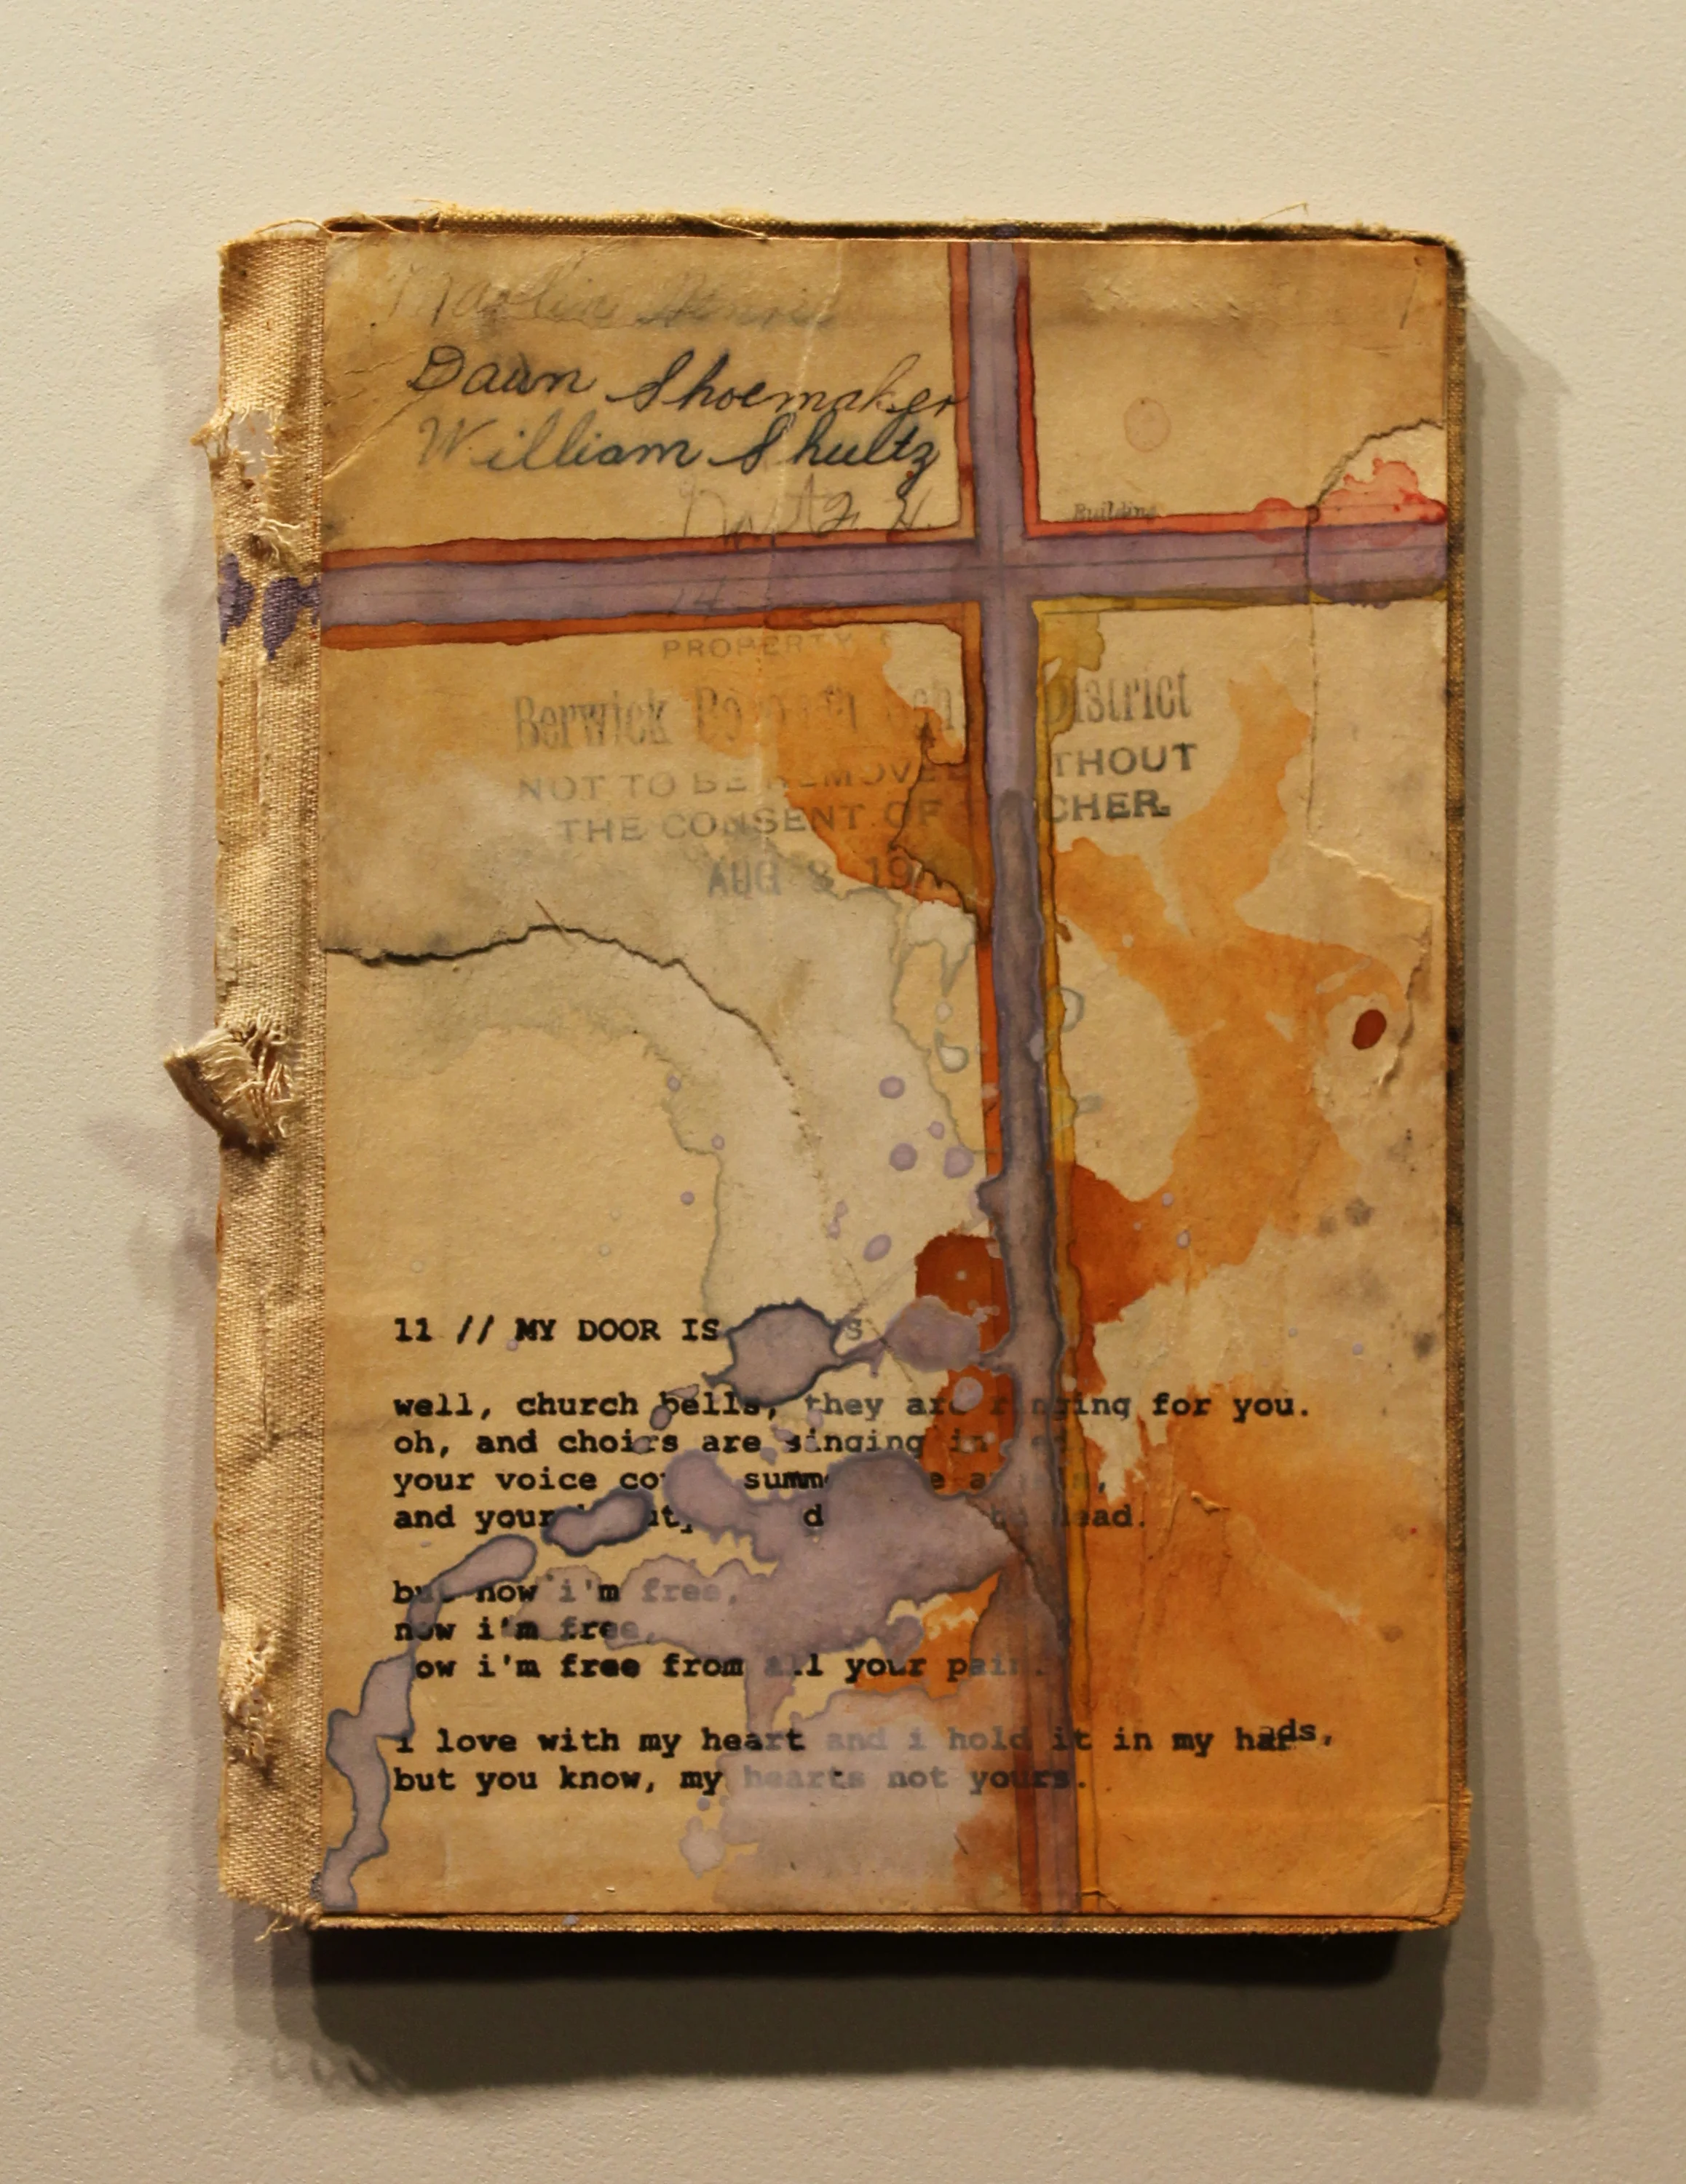 Dawn Shoemaker
William Shultz
Building
PROPERTY
Berwick District
NOT TO BE REMOVED THOUT
THE CONSENT OF CHER.
AUG 8, 19
11 // MY DOOR IS
well, church bells, they are ringing for you.
oh, and choirs are singing in
your voice summ
and your d ead.
but now i'm free,
now i'm free,
ow i'm free from all your pain.
i love with my heart and i hold it in my hands,
but you know, my hearts not yours.